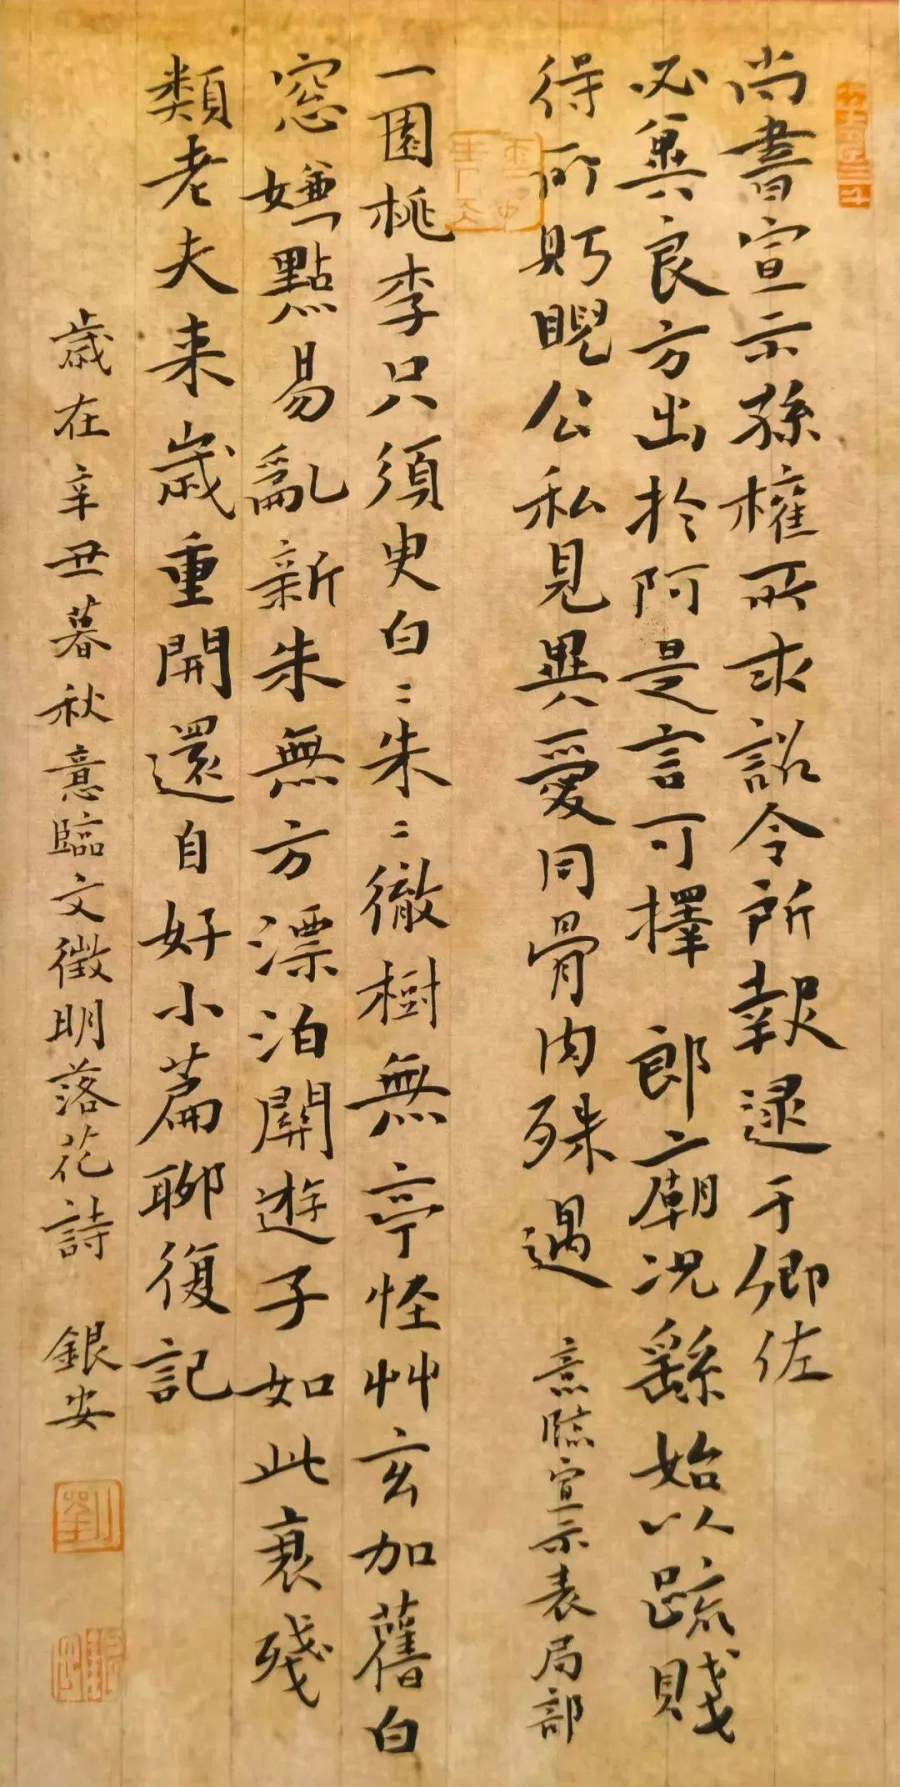 尚書宣示孫權所求詔令所報逮于卿佐
必冀良方出於阿是言可擇郎廟況繇始以疏賤
得所貯睨公私見異愛同骨肉殊遇
意臨宣示表局部
一園桃李只須臾白〻朱〻徹樹無亭怪艸玄加舊白
窓嫌點易亂新朱無方漂泊關遊子如此衰殘
類老夫来歲重開還自好小篇聊復記
歲在辛丑暮秋意臨文徵明落花詩 銀安
劉